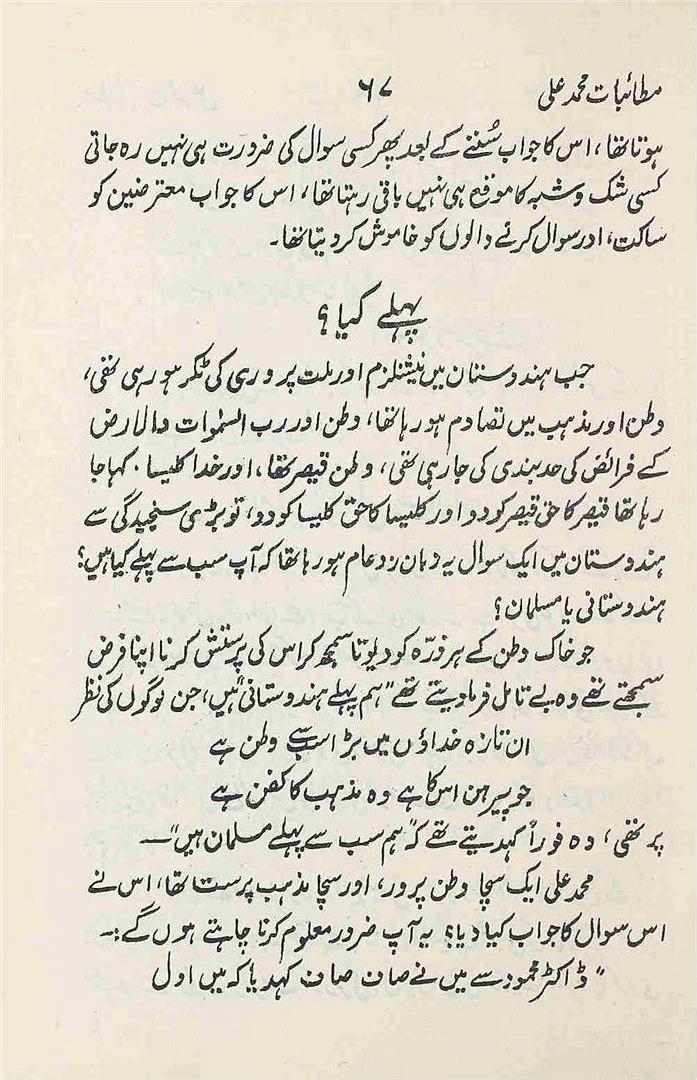 مطائبات محمد علی ۶۷
ہوتا تھا، اس کا جواب سُننے کے بعد پھر کسی سوال کی ضرورت ہی نہیں رہ جاتی
کسی شک و شبہ کا موقع ہی نہیں باقی رہتا تھا، اس کا جواب معترضین کو
ساکت، اور سوال کرنے والوں کو خاموش کر دیتا تھا۔
پہلے کیا؟
جب ہندوستان میں نیشنلزم اور ملت پروری کی ٹکر ہو رہی تھی،
وطن اور مذہب میں تصادم ہو رہا تھا، وطن اور رب السمٰوات والارض
کے فرائض کی حد بندی کی جا رہی تھی، وطن قیصر تھا، اور خدا کلیسا۔ کہا جا
رہا تھا قیصر کا حق قیصر کو دو اور کلیسا کا حق کلیسا کو دو، تو بڑی سنجیدگی سے
ہندوستان میں ایک سوال یہ زبان زد عام ہو رہا تھا کہ آپ سب سے پہلے کیا ہیں؟
ہندوستانی یا مسلمان؟
جو خاک وطن کے ہر ذرّہ کو دیوتا سمجھ کر اس کی پرستش کرنا اپنا فرض
سمجھتے تھے وہ بے تامل فرما دیتے تھے "ہم پہلے ہندوستانی ہیں، جن لوگوں کی نظر
ان تازہ خداؤں میں بڑا سب سے وطن ہے
جو پیرہن اس کا ہے وہ مذہب کا کفن ہے
پر تھی، وہ فوراً کہدیتے تھے کہ "ہم سب سے پہلے مسلمان ہیں"—
محمد علی ایک سچا وطن پرور، اور سچا مذہب پرست تھا، اس نے
اس سوال کا جواب کیا دیا؟ یہ آپ ضرور معلوم کرنا چاہتے ہوں گے:۔
"ڈاکٹر محمود سے میں نے صاف صاف کہدیا کہ میں اول